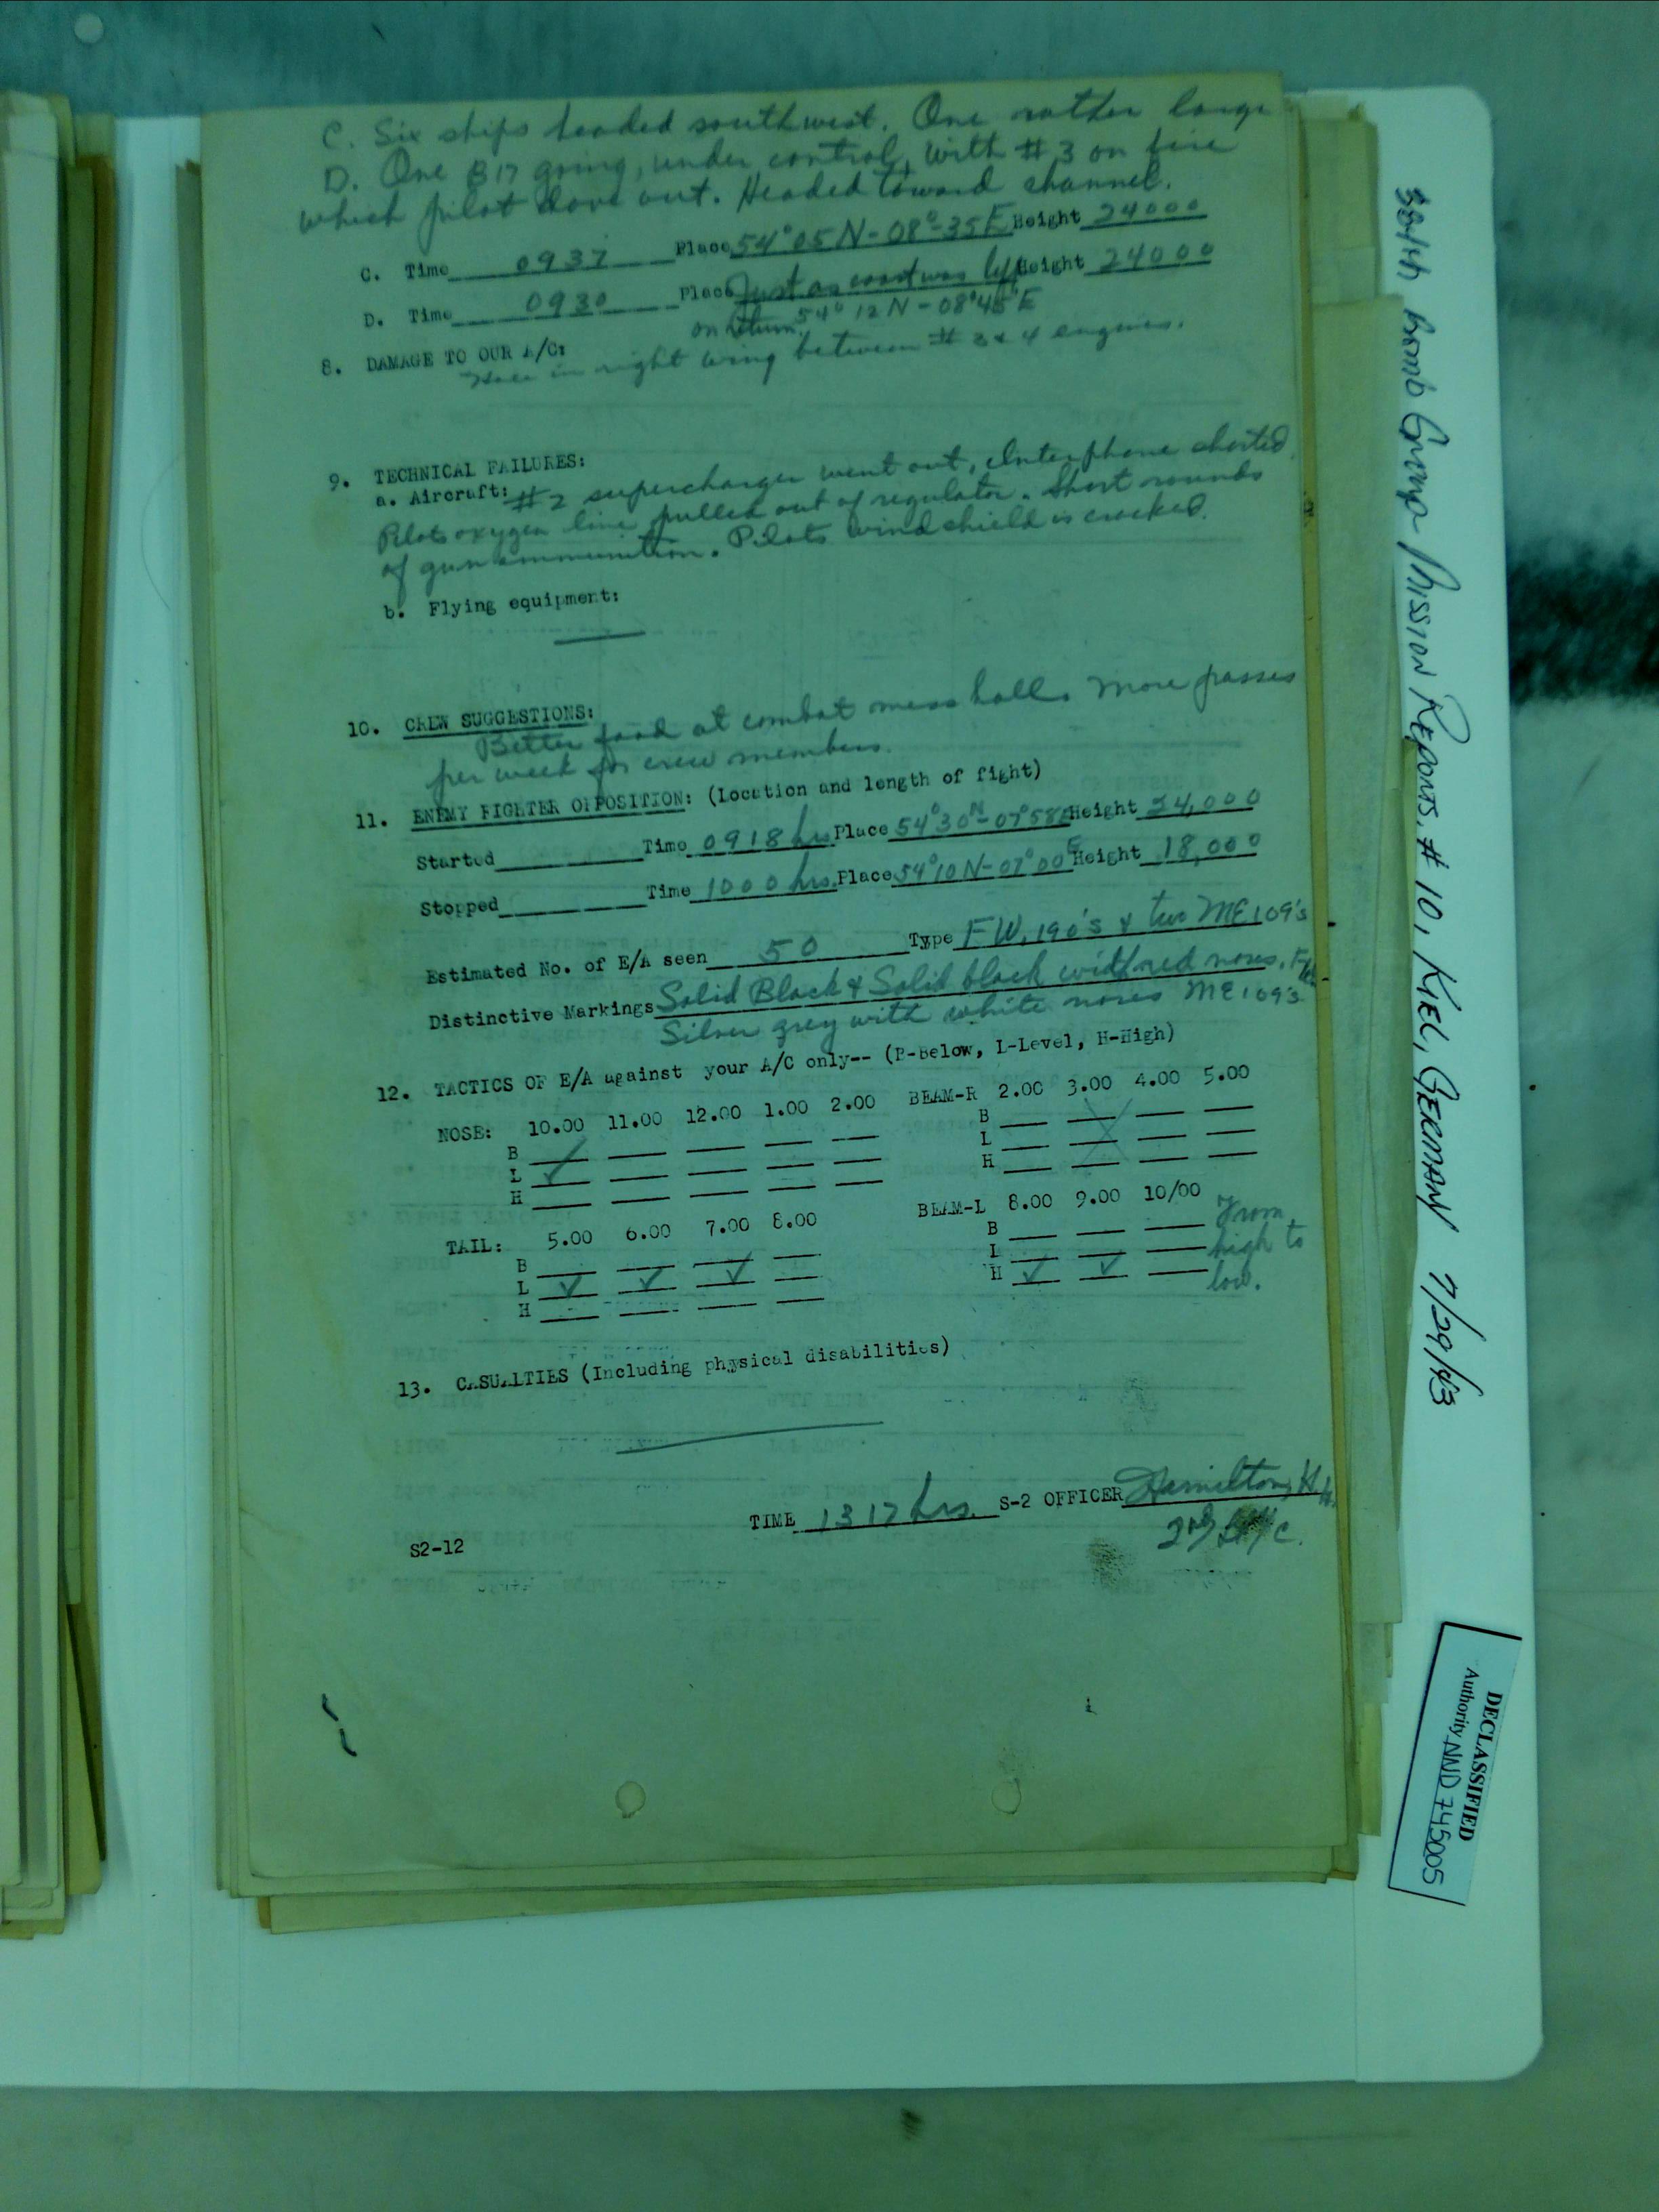 C. Six ships headed southwest. One rather large
D. One B17 going, under control, with #3 on fire
which pilot dove out. Headed toward channel.
C. Time 0937 Place 54°05N-08°-35E Height 24000
D. Time 0930 Place Just as coast was left Height 24000
on return 54° 12N-08°45'E
8. DAMAGE TO OUR A/C:
in right wing between # 3 & 4 engines.
9. TECHNICAL FAILURES:
a. Aircraft: #2 supercharger went out, Interphone shorted.
Pilots oxygen line pulled out of regulator. Short rounds
of gun ammunition. Pilots windshield is cracked.
b. Flying equipment:
10. CREW SUGGESTIONS:
Better food at combat mess halls. More passes
per week for crew members.
11. ENEMY FIGHTER OPPOSITION: (Location and length of fight)
Started Time 0918 hrs Place 54°30N-07°58E Height 24,000
Stopped Time 1000 hrs. Place 54°10N-07°00E Height 18,000
Estimated No. of E/A seen 50 Type F.W. 190's & two ME109's
Distinctive Markings Solid Black & Solid black with red noses. F/W
Silver grey with white noses ME109's
12. TACTICS OF E/A against your A/C only-- (B-Below, L-Level, H-High)
NOSE: 10.00 11.00 12.00 1.00 2.00 BEAM-R 2.00 3.00 4.00 5.00
B B
L ✓ L
H H
TAIL: 5.00 6.00 7.00 8.00 BEAM-L 8.00 9.00 10/00 From
B B
L ✓ ✓ ✓ L high to
H H ✓ ✓ low.
13. CASUALTIES (Including physical disabilities)
TIME 1317 hrs. S-2 OFFICER Hamilton, H.H.
2nd Lt A/C.
S2-12
Bomb Group Mission Reports, # 10, KIEL, GERMANY 7/29/43
DECLASSIFIED
Authority NND 745005